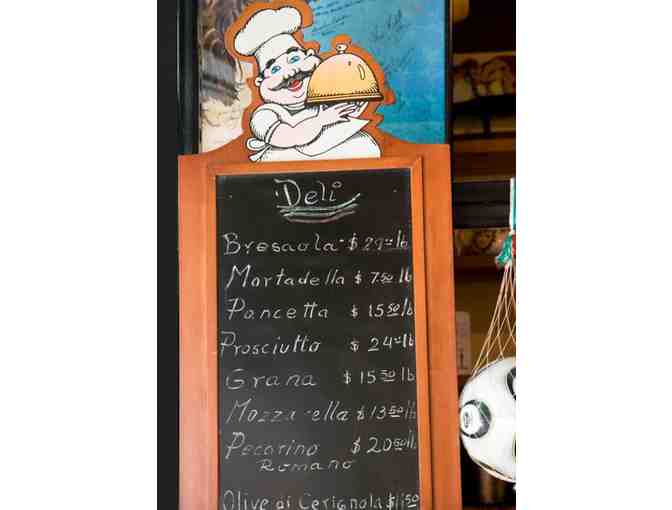 Deli
Bresaola $29.50 lb
Mortadella $7.50 lb
Pancetta $15.50 lb
Prosciutto $24 lb
Grana $15.50 lb
Mozzarella $13.50 lb
Pecorino $20.50 lb
Romano
Olive di Cerignola